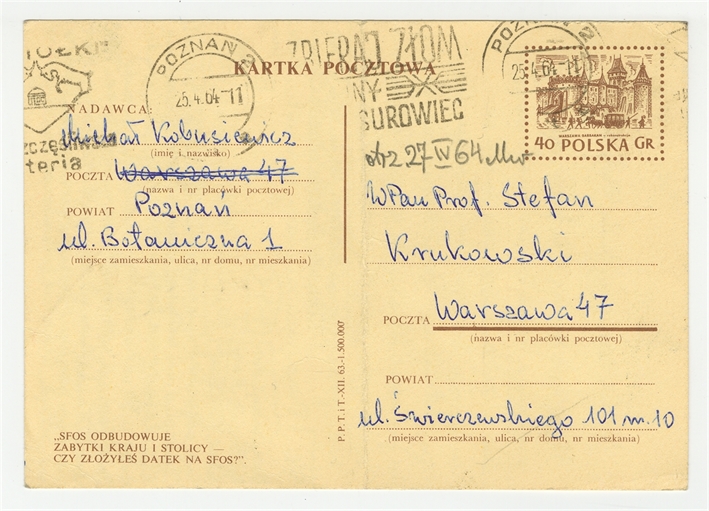 POZNAŃ 2
25.4.64-11
ZBIERAJ ZŁOM
NY
SUROWIEC
POZNAŃ 2
25.4.64-11
KARTKA POCZTOWA
WARSZAWA BARBAKAN
40 POLSKA GR
NADAWCA:
Michał Kobusiewicz
(imię i nazwisko)
POCZTA Warszawa 47
(nazwa i nr placówki pocztowej)
POWIAT Poznań
ul. Botaniczna 1
(miejsce zamieszkania, ulica, nr domu, nr mieszkania)
teria
otrz 27 IV 64
WPan Prof. Stefan
Krukowski
POCZTA Warszawa 47
(nazwa i nr placówki pocztowej)
POWIAT
ul. Świerczewskiego 101 m. 10
(miejsce zamieszkania, ulica, nr domu, nr mieszkania)
P. P. T. i T.-XII. 63.-1.500.000
„SFOS ODBUDOWUJE
ZABYTKI KRAJU I STOLICY —
CZY ZŁOŻYŁEŚ DATEK NA SFOS?".